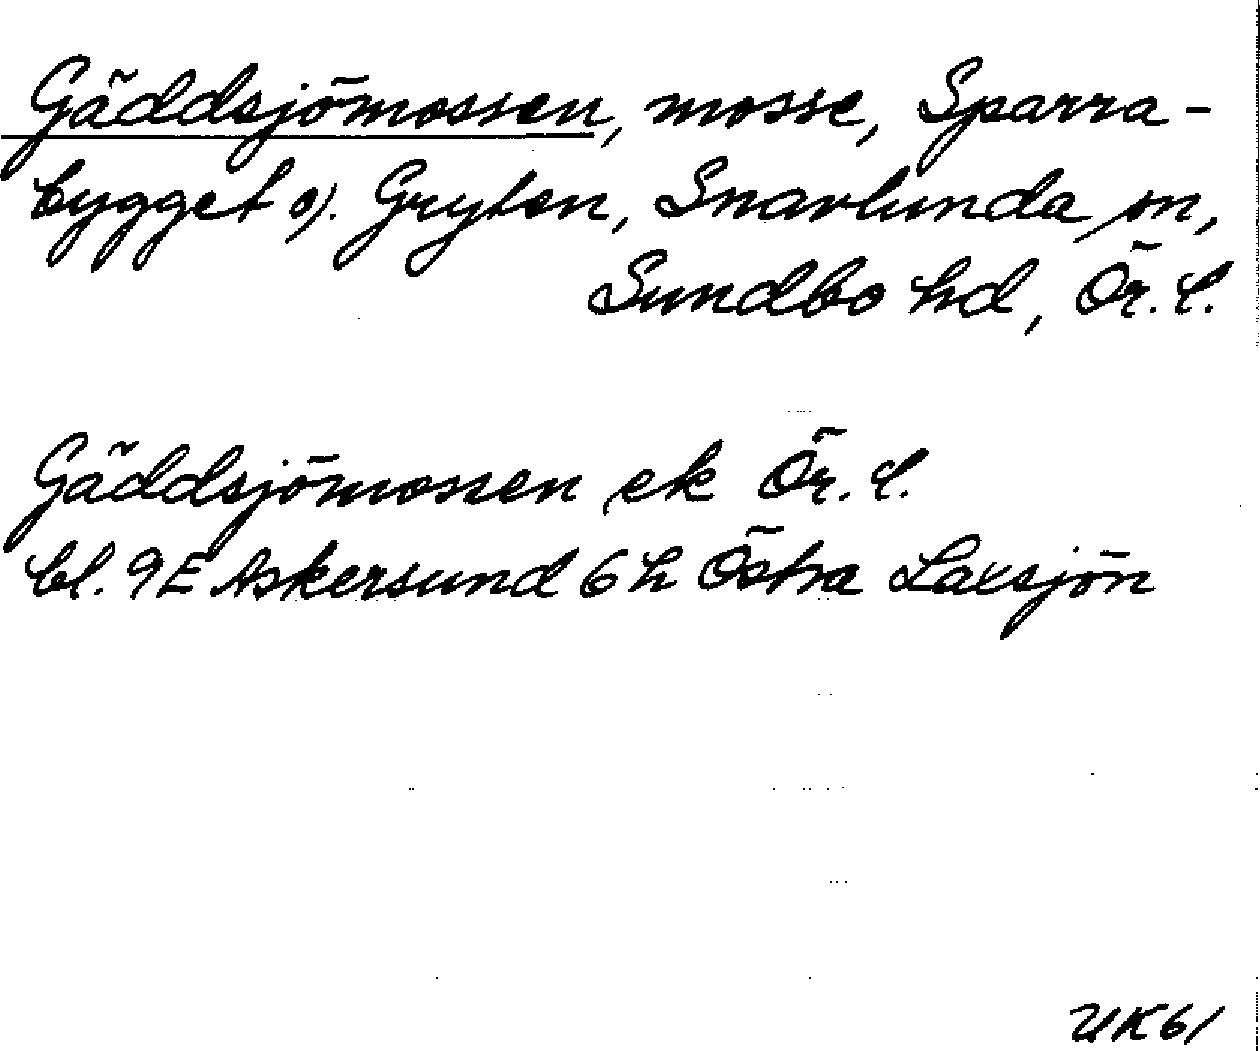 Gäddsjömossen, mosse, Sparra-
bygget o). Gryten, Snavlunda sn,
Sundbo hd, Ör. l.
Gäddsjömossen ek Ör. l.
bl. 9E Askersund 6h Östra Laxsjön
UK61